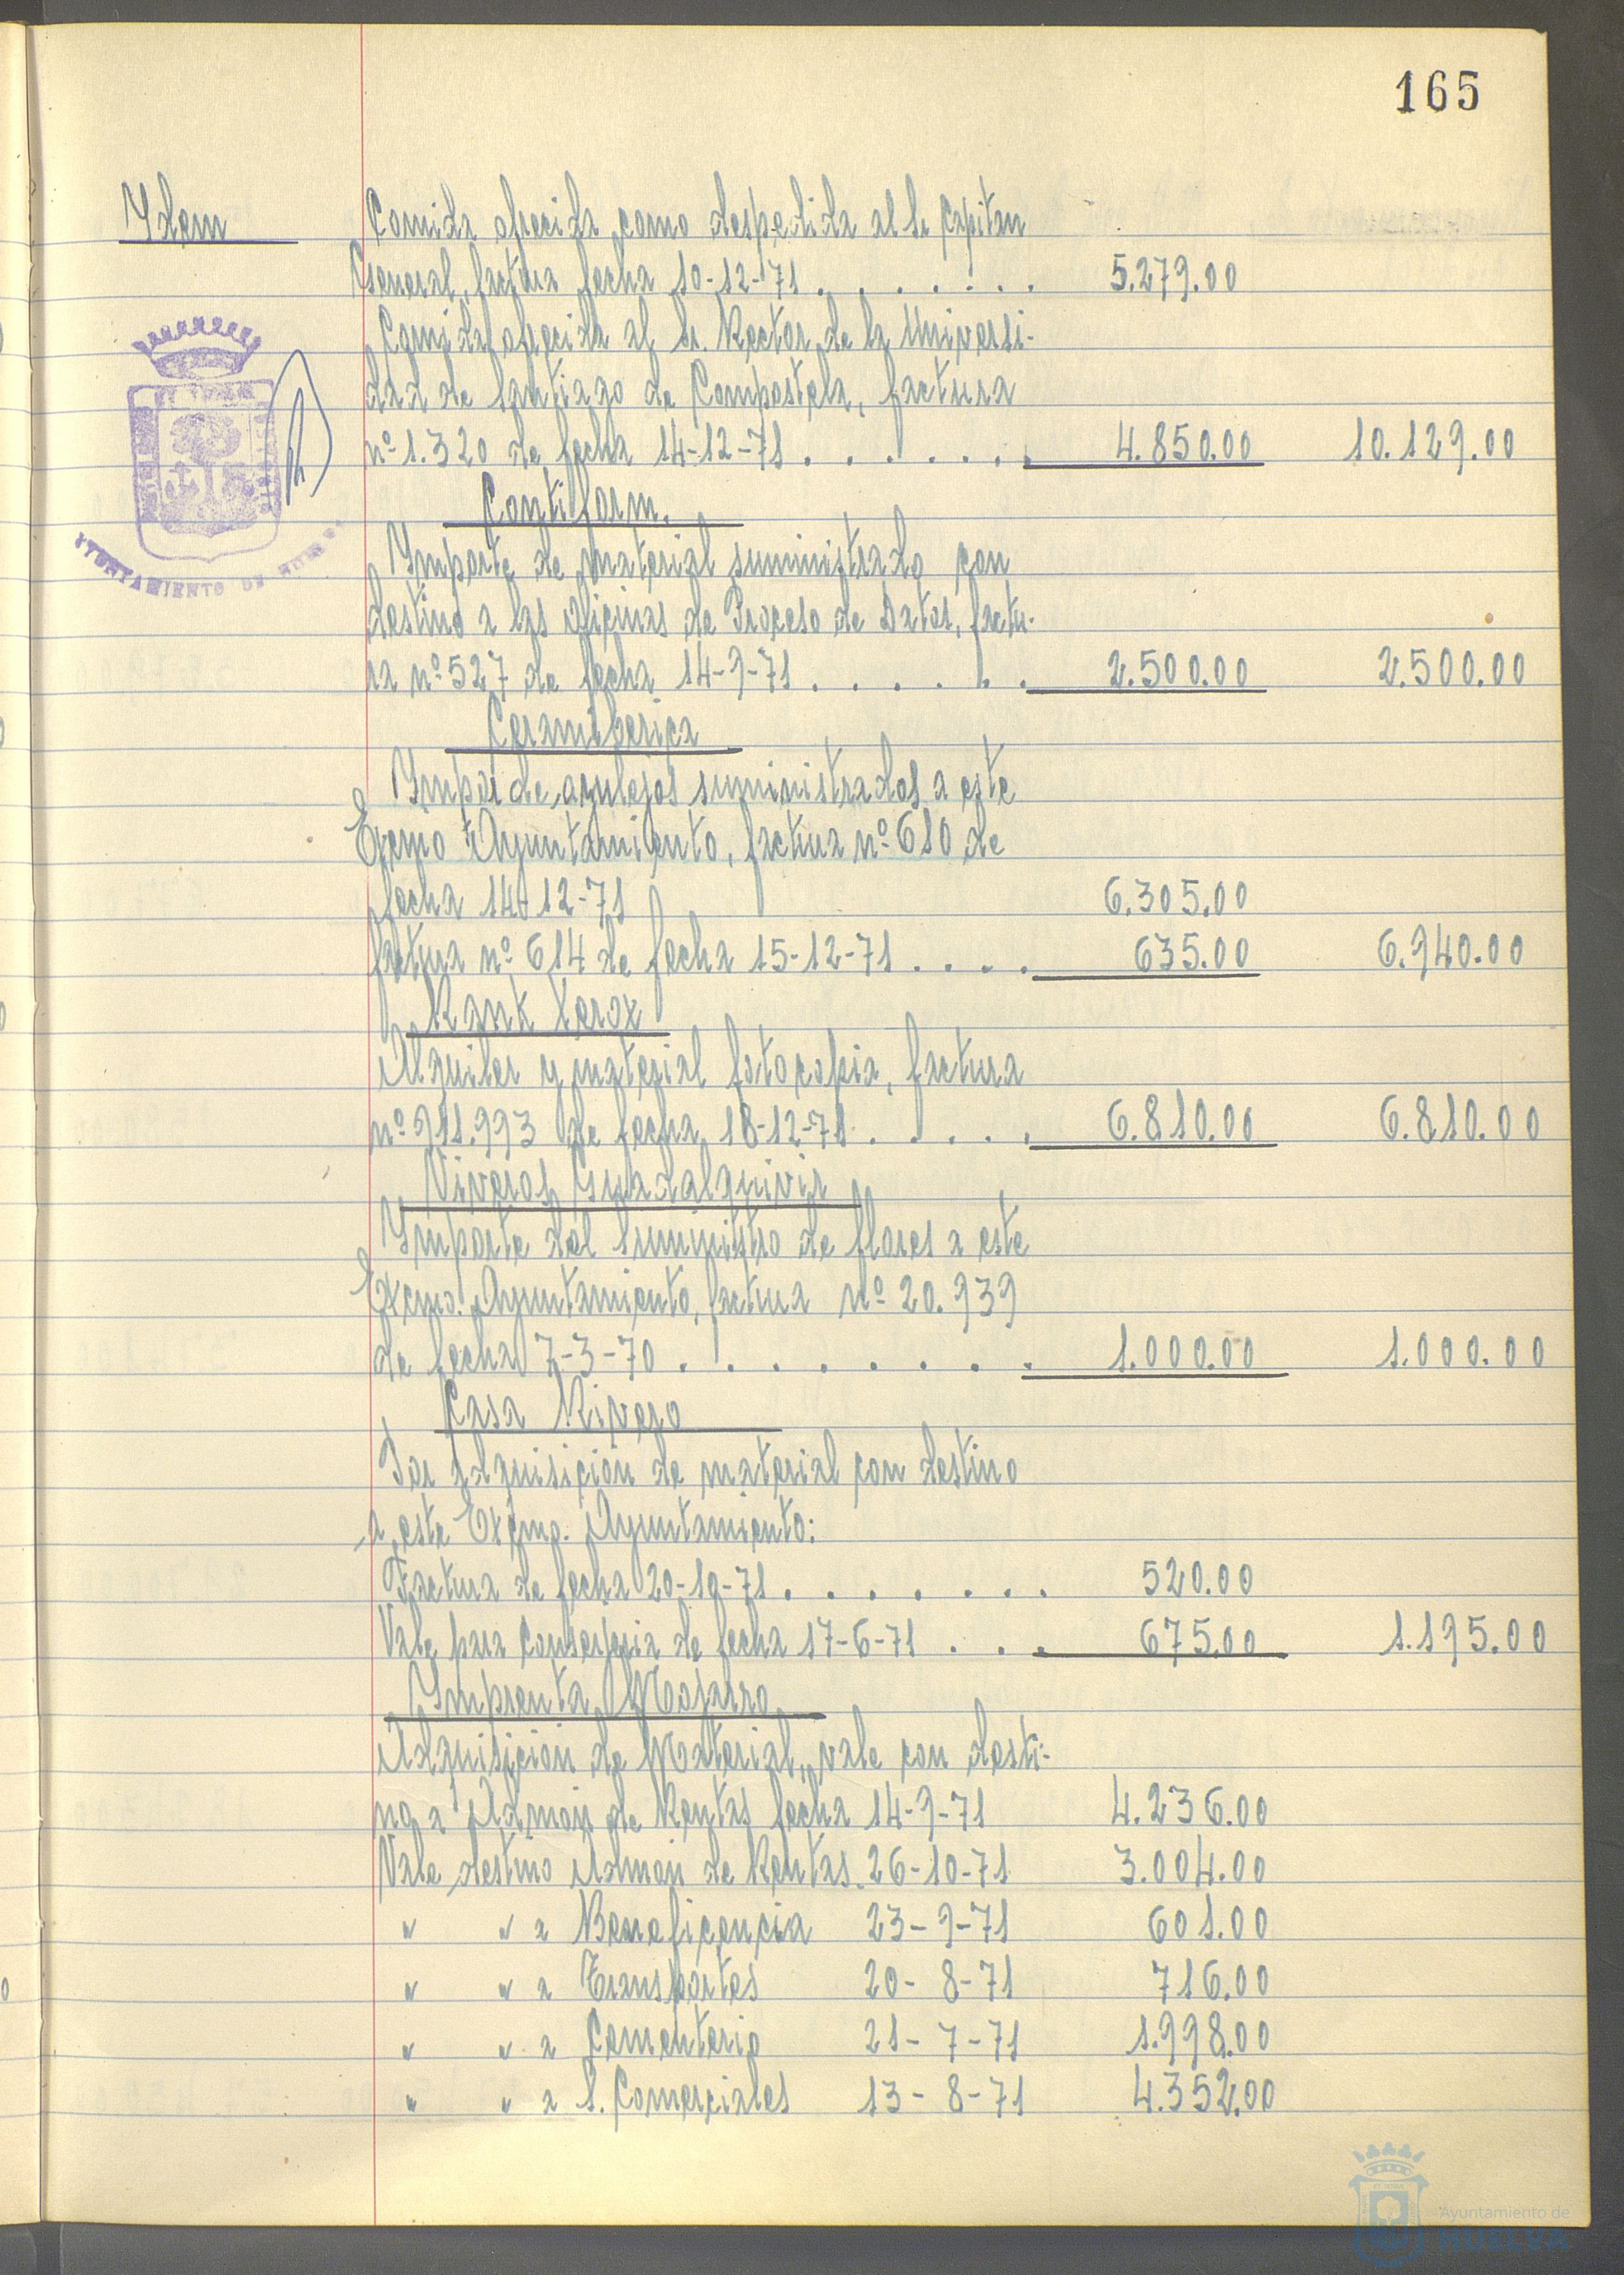 165
Idem
Comida ofrecida como despedida al Sr Capitan
General, factura fecha 10-12-71 . . . . . . . 5.279.00
Comida ofrecida al Sr. Rector de la Universi-
dad de Santiago de Compostela, factura
nº 1.320 de fecha 14-12-71 . . . . . . . 4.850.00 10.129.00
Contiform.
Importe de material suministrado con
destino a las oficinas de Proceso de Datos, factu-
ra nº 527 de fecha 14-9-71 . . . . . . 2.500.00 2.500.00
Ceramiberica
de azulejos suministrados a este
Excmo Ayuntamiento, factura nº 610 de
fecha 14-12-71 6.305.00
factura nº 614 de fecha 15-12-71 . . . . 635.00 6.940.00
Rank Xerox
Alquiler y material fotocopia, factura
nº 911.993 de fecha 18-12-71 . . . . . 6.810.00 6.810.00
Viveros Guadalquivir
Importe del Suministro de flores a este
Excmo. Ayuntamiento, factura nº 20.939
de fecha 7-3-70 . . . . . . . . 1.000.00 1.000.00
Casa Rivero
Por adquisición de material con destino
a este Excmo. Ayuntamiento:
Factura de fecha 20-10-71 . . . . . . . 520.00
Vale para Conserjeria de fecha 17-6-71 . . . 675.00 1.195.00
Imprenta Mojarro
Adquisición de Material, vale con desti-
no a Admon de Rentas fecha 14-9-71 4.236.00
Vale destino Admon de Rentas 26-10-71 3.004.00
" " a Beneficencia 23-9-71 601.00
" " a Transportes 20-8-71 716.00
" " a Cementerio 21-7-71 1.998.00
" " a S. Comerciales 13-8-71 4.352.00
AYUNTAMIENTO DE HUELVA
Ayuntamiento de
HUELVA